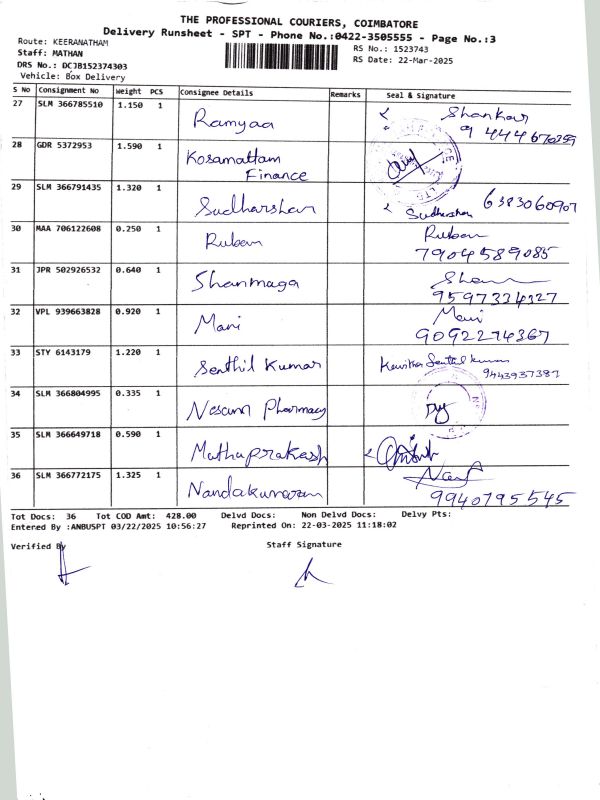 THE PROFESSIONAL COURIERS, COIMBATORE
Delivery Runsheet - SPT - Phone No.:0422-3505555 - Page No.:3
Route: KEERANATHAM
RS No.: 1523743
Staff: MATHAN
RS Date: 22-Mar-2025
DRS No.: DCJB152374303
Vehicle: Box Delivery
S No Consignment No Weight PCS Consignee Details Remarks Seal & Signature
27 SLM 366785510 1.150 1 Ramyaa Shankar
28 GDR 5372953 1.590 1 Kosamattam Finance
29 SLM 366791435 1.320 1 Sudharshan Sudharshan 6383060907
30 MAA 706122608 0.250 1 Ruban Ruban 7904589085
31 JPR 502926532 0.640 1 Shanmaga 9597334327
32 VPL 939663828 0.920 1 Mani Mani 9092274367
33 STY 6143179 1.220 1 Senthil Kumar Senthil Kumar 9443937387
34 SLM 366804995 0.335 1 Pharmacy
35 SLM 366649718 0.590 1 Muthuprakash
36 SLM 366772175 1.325 1 Nandakumaran 9940795545
Tot Docs: 36 Tot COD Amt: 428.00 Delvd Docs: Non Delvd Docs: Delvy Pts:
Entered By :ANBUSPT 03/22/2025 10:56:27 Reprinted On: 22-03-2025 11:18:02
Verified By Staff Signature